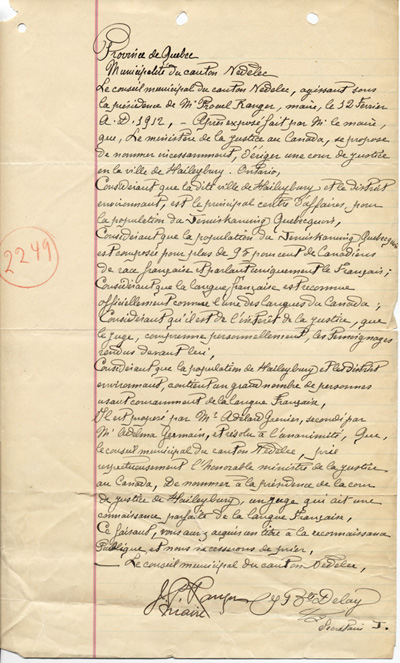 Province de Quebec
Municipalité du canton Nédelec
Le conseil municipal du canton Nédelec, agissant sous
la présidence de Mr Raoul Ranger, maire, le 12 février
A.D. 1912, – Après exposé fait par Mr le maire,
que, Le ministère de la justice au Canada, se propose
de nommer incessamment, d'ériger une cour de justice
en la ville de Haileybury. Ontario,
Considérant que la dite ville de Haileybury et le district
environnant, est le principal centre d'affaires, pour
la population du Temiskaming Quebecquois,
Considérant que la population du Temiskaming Quebecquois
est composé pour plus de 95 pour cent de Canadiens
de race française et parlant uniquement le Français;
Considérant que la langue française est reconnue
officiellement comme l'une des langues du Canada;
Considérant qu'il est de l'intérêt de la justice, que
le juge, comprenne personnellement, les témoignages
rendus devant lui,
Considérant que la population de Haileybury et le district
environnant, contient un grand nombre de personnes
usant couramment de la langue Française,
Il est proposé par Mr Adélard Grenier, secondé par
Mr Adelma Germain, et résolu à l'unanimité, Que,
le conseil municipal du canton Nédelec, prie
respectueusement l'honorable ministre de la justice
au Canada, de nommer à la présidence de la cour
de justice de Haileybury, un juge qui ait une
connaissance parfaite de la langue Française,
Ce faisant, vous aurez acquis un titre à la reconnaissance
Publique et nous ne cesserons de prier,
– Le conseil municipal du canton Nédelec,
2249
Ranger
Maire
Delay
Secrétaire T.